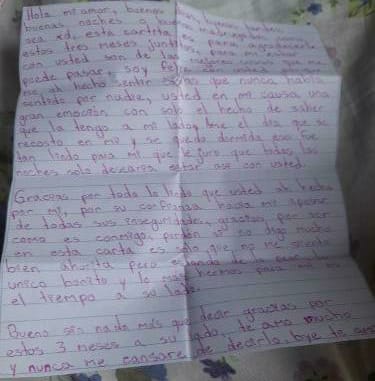 Hola mi amor, buenos días, buenas tardes,
buenas noches o buenas madrugadas como
sea xd, esta cartita es para agradecerle
estos tres meses juntos, para mi estar
con usted son de las mejores cosas que me
puede pasar, soy feliz con usted
me ah hecho sentir cosas que nunca había
sentido por nadie, usted en mi causa una
gran emoción con solo el hecho de saber
que la tengo a mi lado, ese el día que se
recosto en mi y se quedo dormida eso fue
tan lindo para mi que le juro que todas las
noches solo desearia estar asi con usted.
Gracias por todo lo lindo que usted ah hecho
por mi, por su confianza hacia mi apesar
de todas sus inseguridades, gracias por ser
como es conmigo, perdon si no digo mucho
en esta carta es solo que no me siento
bien ahorita pero
unico bonito y lo mas hermoso para mi
el tiempo a su lado.
Bueno sin nada más que decir gracias por
estos 3 meses a su lado, te amo mucho
y nunca me cansare de decirlo, bye te amo